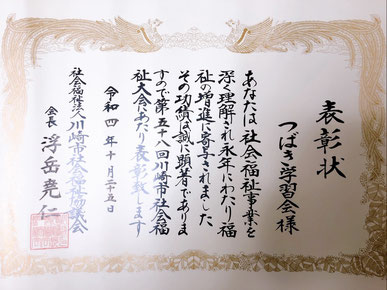 表彰状
つばき学習会様
あなたは社会福祉事業を
深く理解され永年にわたり福
祉の増進に寄与されました
その功績は誠に顕著でありま
すので第五十八回川崎市社会福
祉大会にあたり表彰致します
令和四年十月二十五日
社会福祉法人川崎市社会福祉協議会
会長 浮岳堯仁